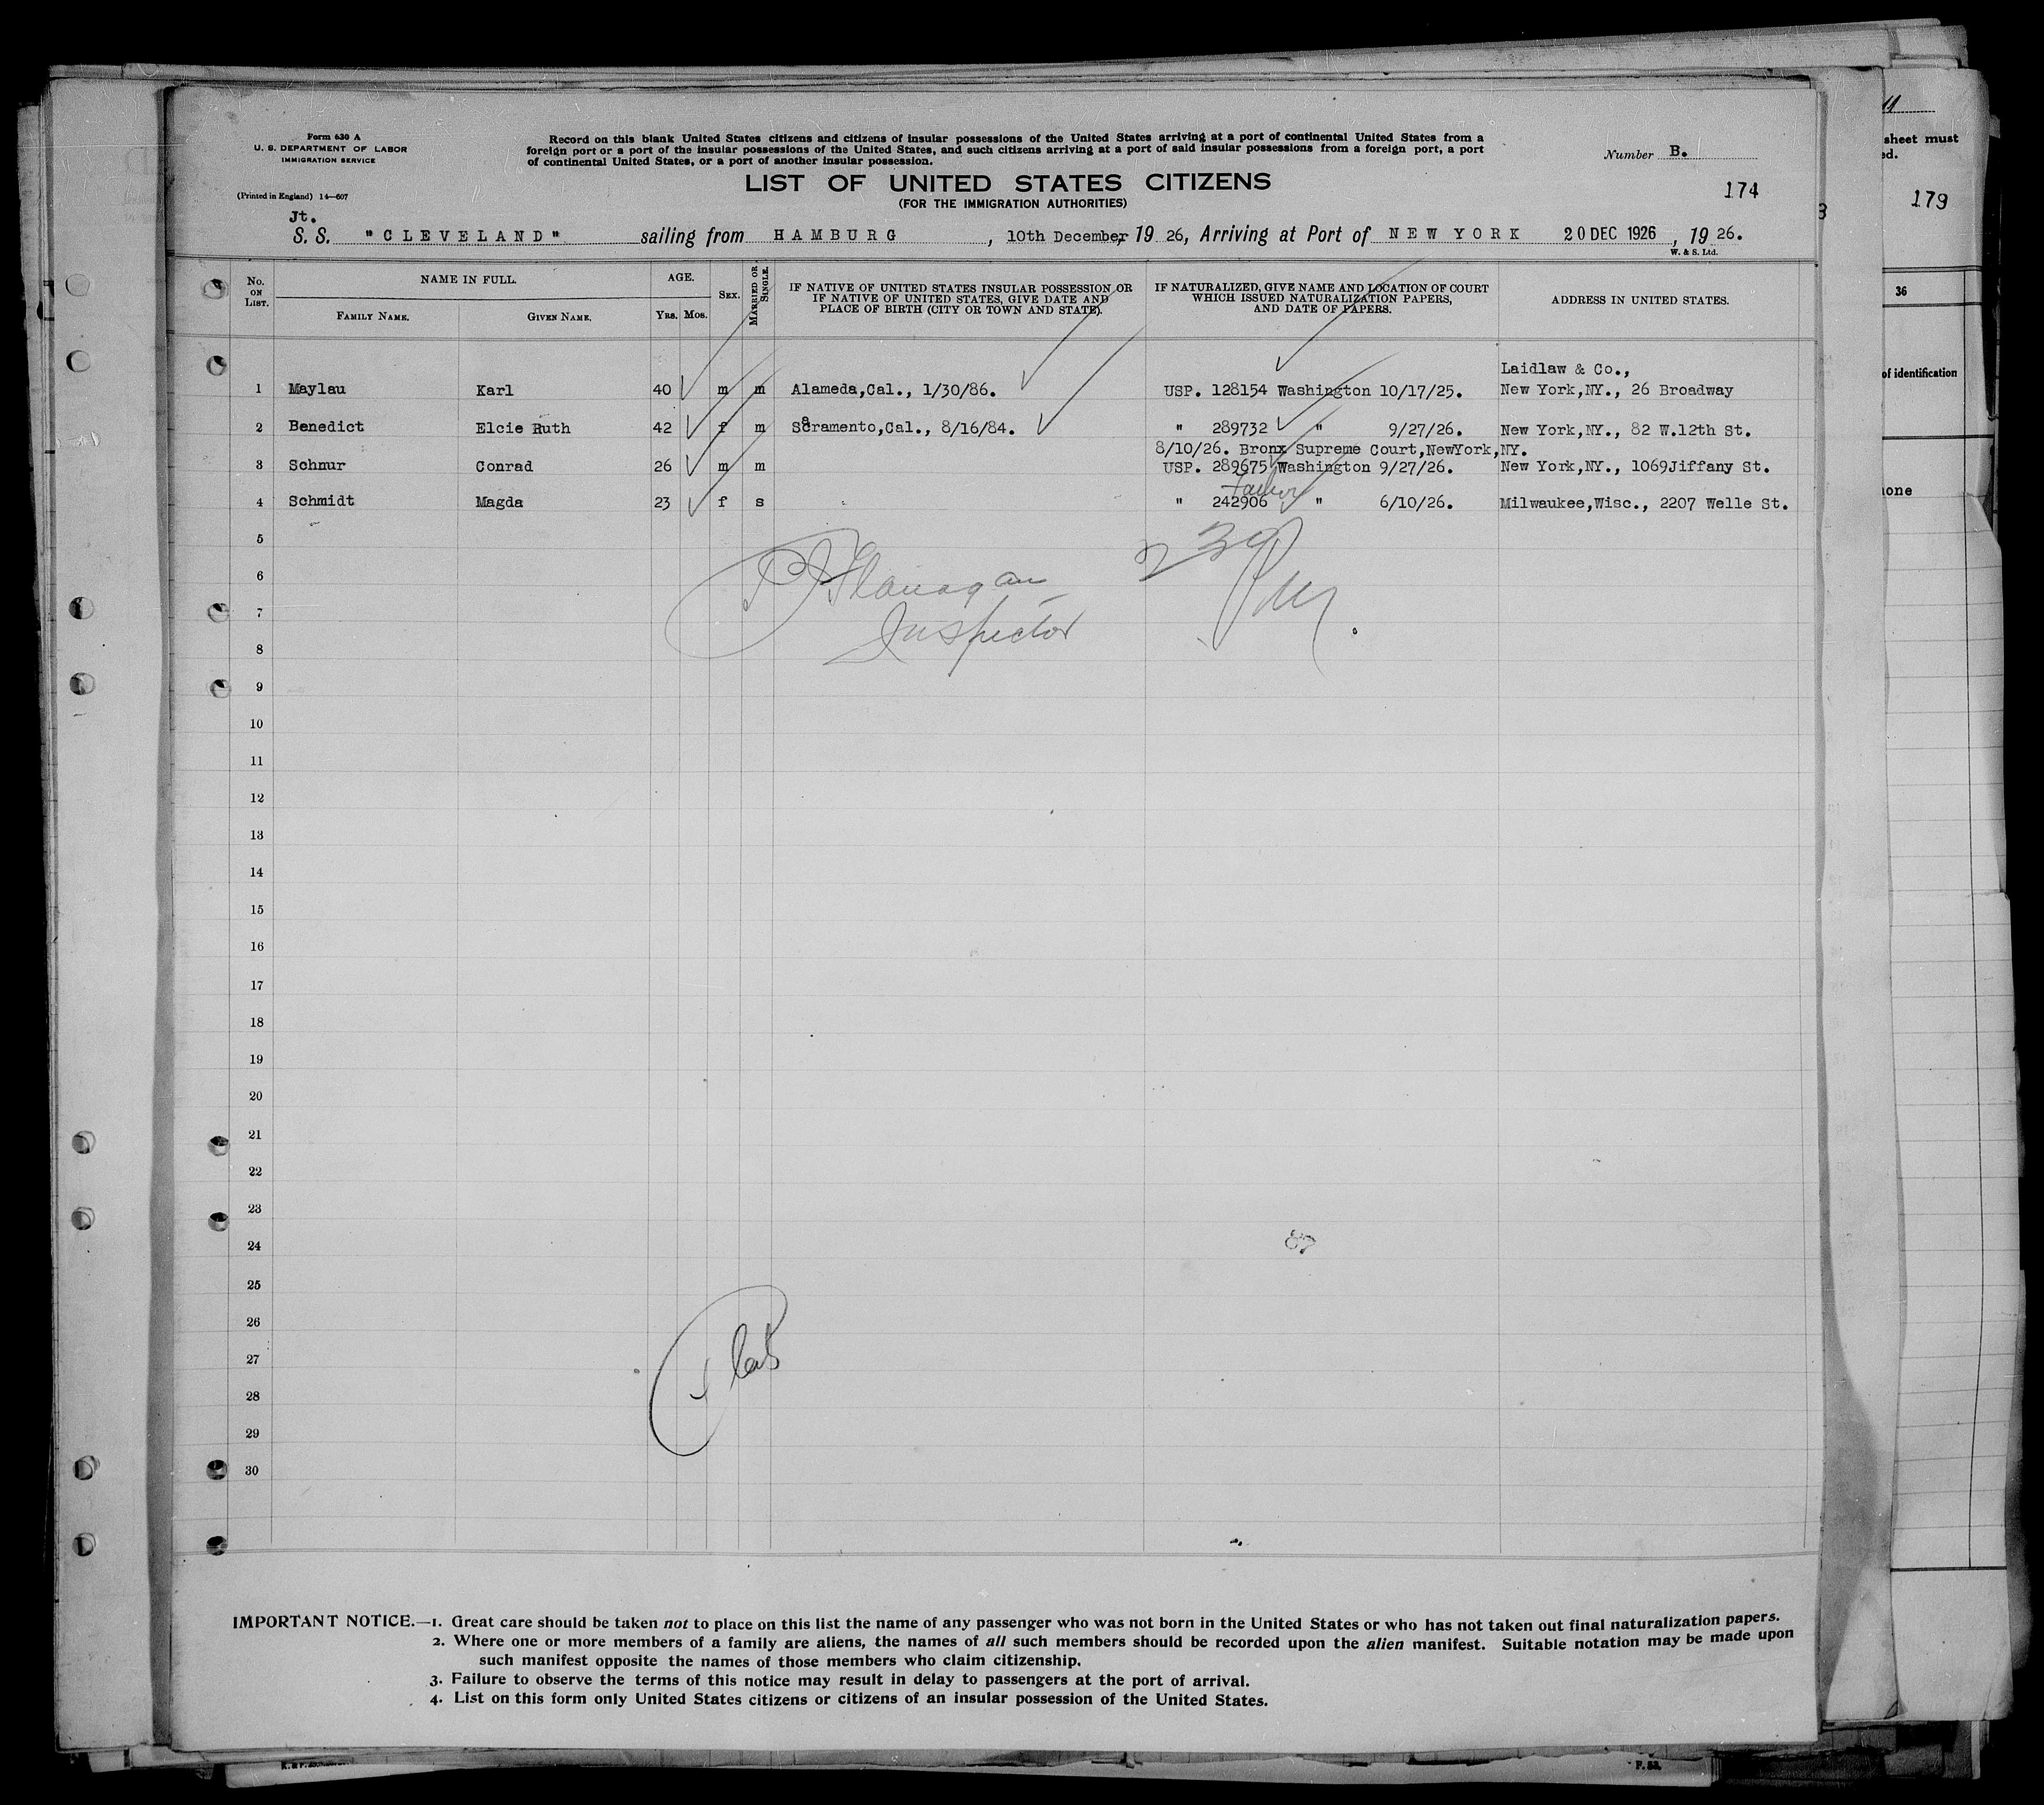 11
Form 630 A
U. S. DEPARTMENT OF LABOR
IMMIGRATION SERVICE
(Printed in England) 14—607
Record on this blank United States citizens and citizens of insular possessions of the United States arriving at a port of continental United States from a
foreign port or a port of the insular possessions of the United States, and such citizens arriving at a port of said insular possessions from a foreign port, a port
of continental United States, or a port of another insular possession.
Number B.
sheet must
ed.
LIST OF UNITED STATES CITIZENS
(FOR THE IMMIGRATION AUTHORITIES)
174
179
Jt.
S. S. "CLEVELAND" sailing from HAMBURG, 10th December, 19 26, Arriving at Port of NEW YORK 20 DEC 1926, 19 26.
W. & S. Ltd.
No. ON LIST. NAME IN FULL. FAMILY NAME. GIVEN NAME. AGE. YRS. MOS. SEX. MARRIED OR SINGLE. IF NATIVE OF UNITED STATES INSULAR POSSESSION OR IF NATIVE OF UNITED STATES, GIVE DATE AND PLACE OF BIRTH (CITY OR TOWN AND STATE). IF NATURALIZED, GIVE NAME AND LOCATION OF COURT WHICH ISSUED NATURALIZATION PAPERS, AND DATE OF PAPERS. ADDRESS IN UNITED STATES.
36
of identification
Laidlaw & Co.,
1 Maylau Karl 40 m m Alameda,Cal., 1/30/86. USP. 128154 Washington 10/17/25. New York,NY., 26 Broadway
2 Benedict Elcie Ruth 42 f m Sacramento,Cal., 8/16/84. " 289732 " 9/27/26. New York,NY., 82 W.12th St.
8/10/26. Bronx Supreme Court,NewYork,NY.
3 Schnur Conrad 26 m m USP. 289675 Washington 9/27/26. New York,NY., 1069Jiffany St.
Father
4 Schmidt Magda 23 f s " 242906 " 6/10/26. Milwaukee,Wisc., 2207 Welle St.
none
5
6
7
8
9
10
11
12
13
14
15
16
17
18
19
20
21
22
23
24
25
26
27
28
29
30
Flanagan
Inspector
239
87
IMPORTANT NOTICE.—1. Great care should be taken not to place on this list the name of any passenger who was not born in the United States or who has not taken out final naturalization papers.
2. Where one or more members of a family are aliens, the names of all such members should be recorded upon the alien manifest. Suitable notation may be made upon
such manifest opposite the names of those members who claim citizenship.
3. Failure to observe the terms of this notice may result in delay to passengers at the port of arrival.
4. List on this form only United States citizens or citizens of an insular possession of the United States.